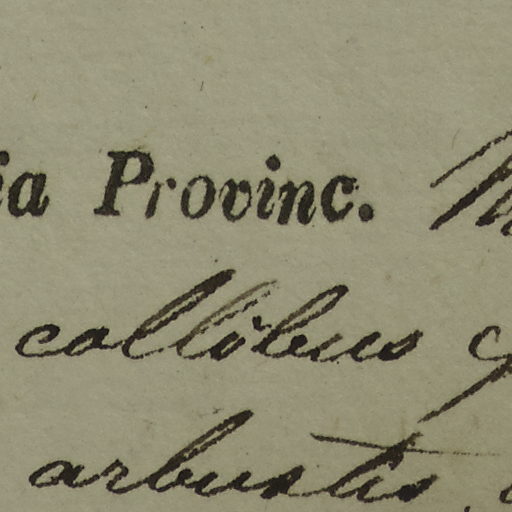 ia Provinc.
collibus
arbustis